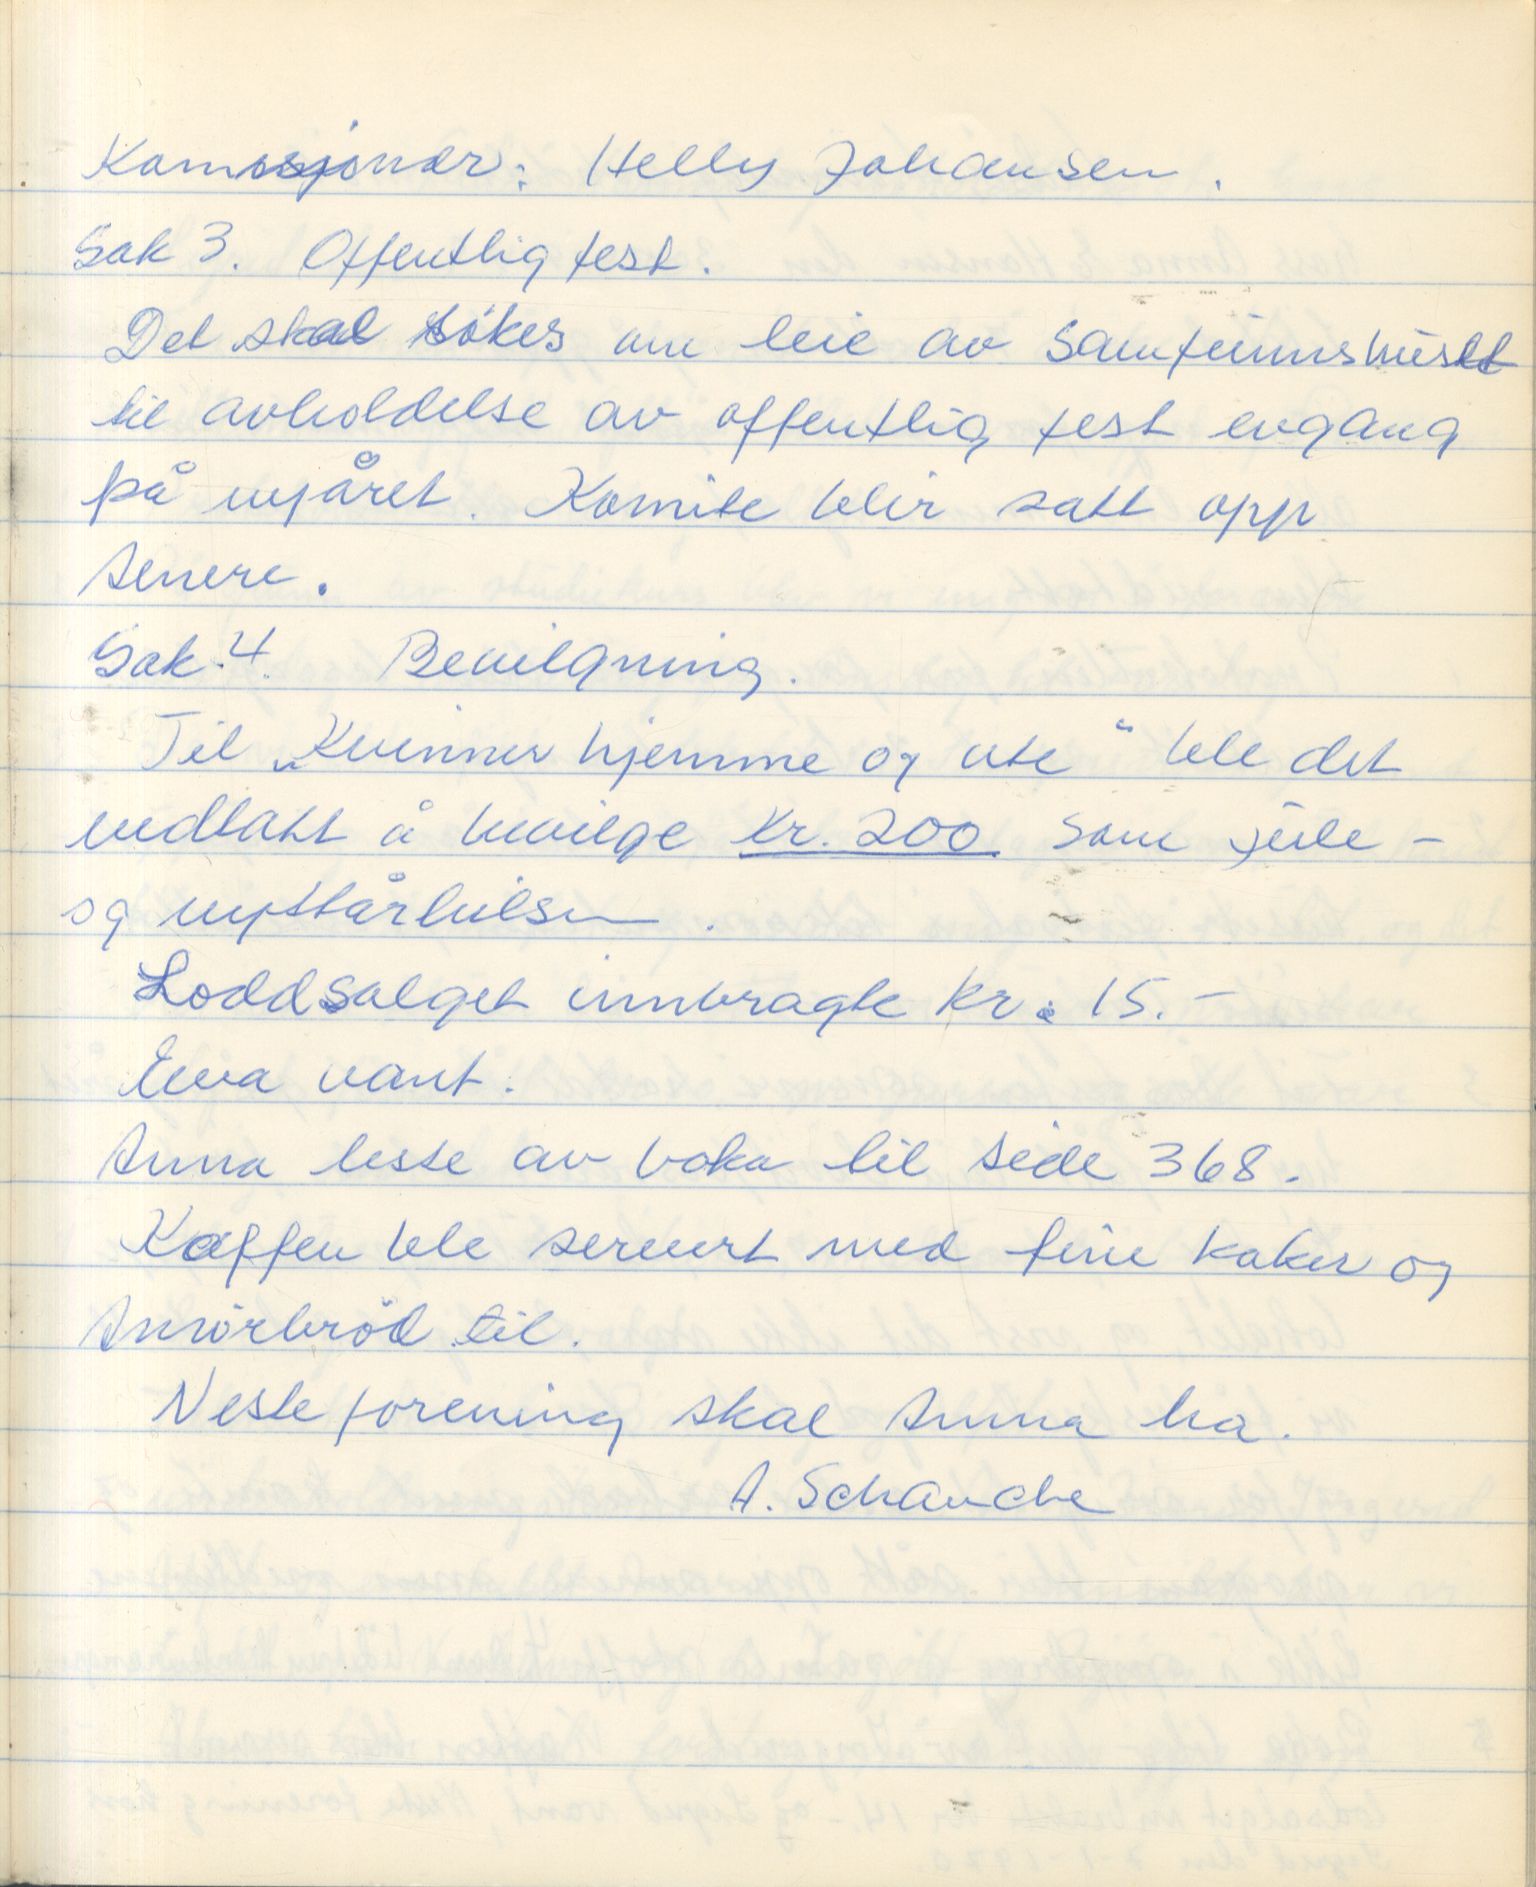 Komisjonær: Helly Johansen.
Sak 3. Offentlig fest.
Det skal søkes om leie av Samfunnshuset
til avholdelse av offentlig fest engang
på nyåret. Komite blir satt opp
senere.
Sak 4. Bevilgning.
Til „Kvinner hjemme og ute“ ble det
vedtatt å bevilge kr. 200 som jule-
og nyttårhilsen.
Loddsalget innbragte kr. 15.-
Ewa vant.
Anna leste av boka til side 368.
Kaffen ble servert med fine kaker og
smörbröd til.
Neste forening skal Anna ha.
A. Schanche